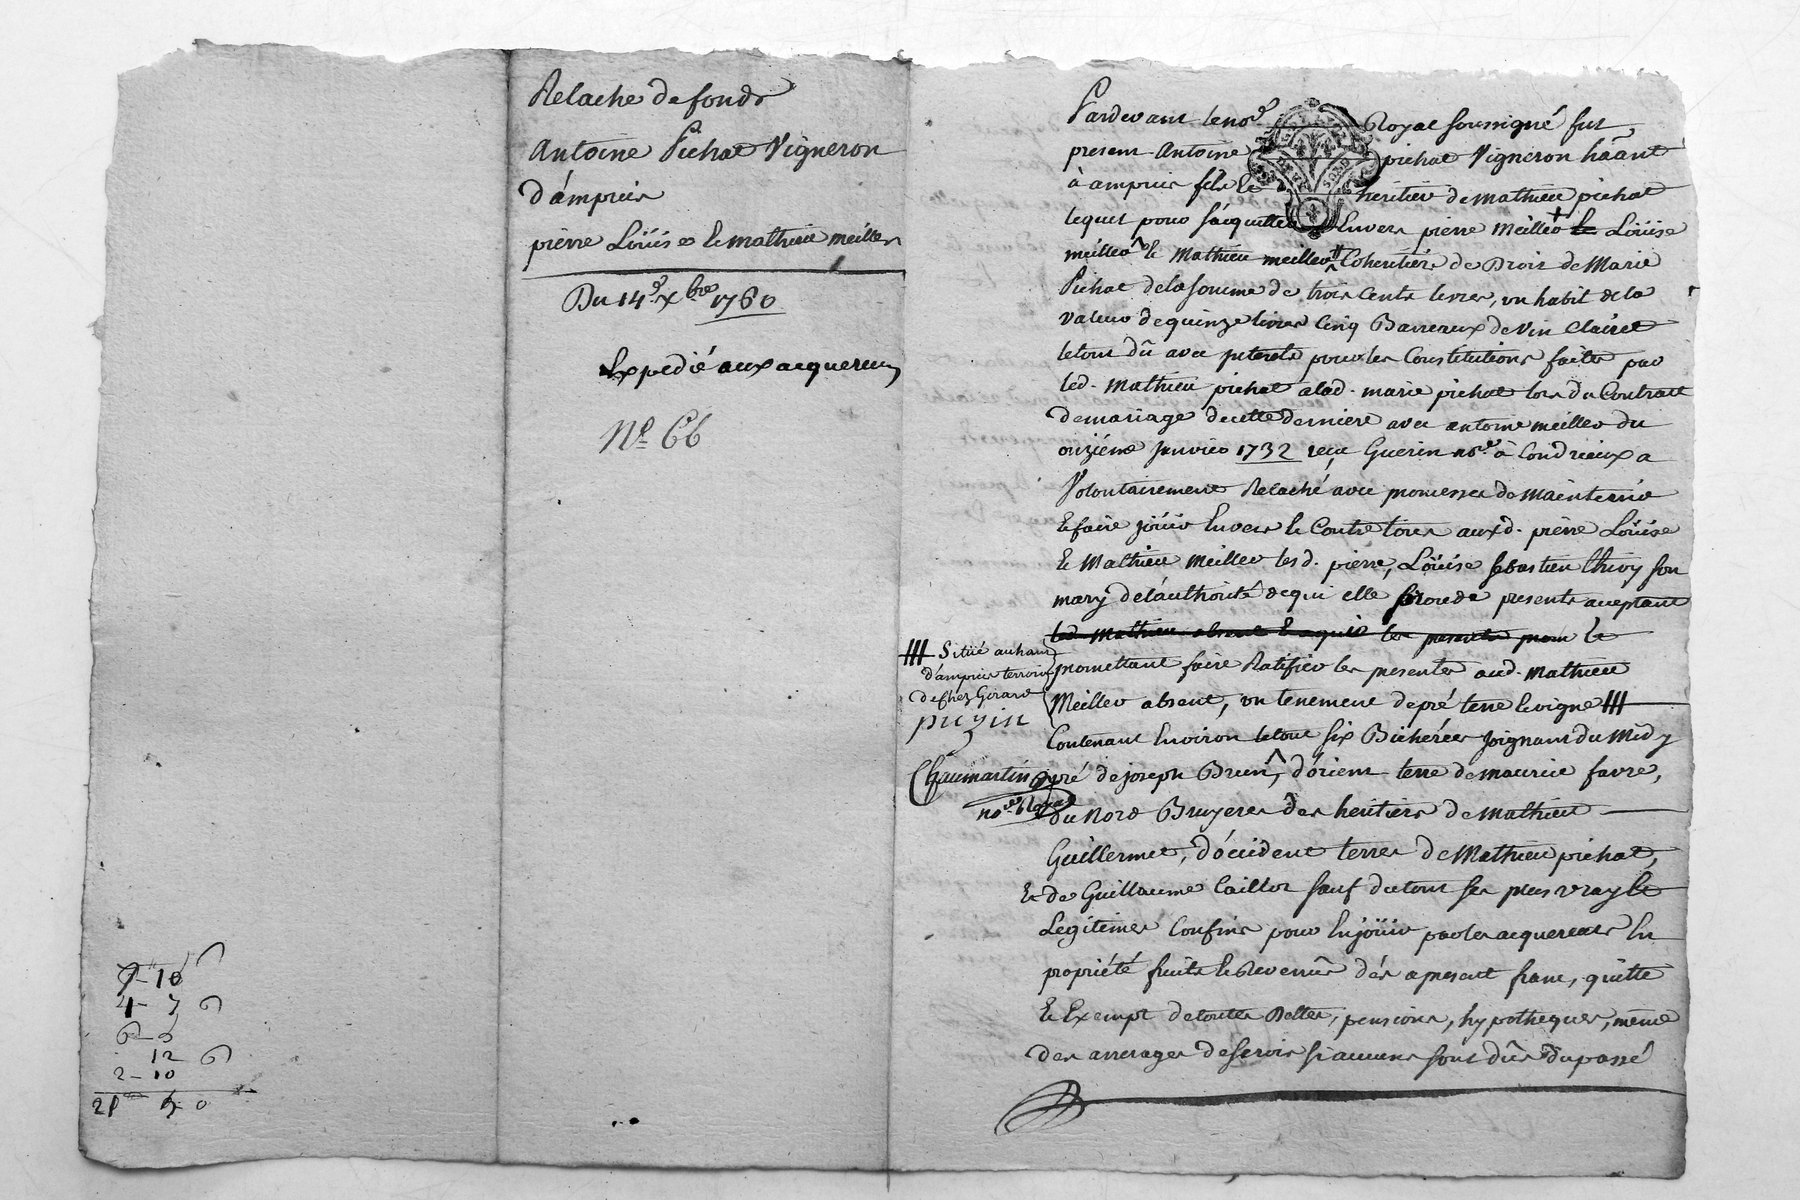 Relache de fonds
Antoine Pichat Vigneron
d'ámpuis
pierre Loüis et le mathieu meiller
Du 14e xbre 1760
Expedié aux acquereurs
No 66
10
4 - 7 6
6 - 5
12 6
2 - 10
21 0
Pardevant le nore Royal soussigné fut
present Antoine pichat Vigneron háant
à ampuis fils et heritier de mathieu pichat
lequel pour s'acquitter Envers pierre Meiller le Loüise
meiller & Mathieu meiller Coheritiers de Droit de Marie
Pichat de la somme de trois Cents livres, un habit de la
valeur de quinze livres Cinq Barreaux de vin clairet
le tout dû avec jnterets pour les Constitutions faites par
led. Mathieu pichat a lad. marie pichat lors du Contrat
de mariage de cette derniere avec antoine meiller du
onziéme Janvier 1732 reçu Guerin nore à Condrieux a
Volontairement Relaché avec promesse de maintenir
et faire joüir Envers et Contre tous auxd. pierre Loüise
& Mathieu Meiller lesd. pierre, Loüise sebastien Thivy son
mary de l'authorité de qui elle procede presents acceptant
led. Mathieu absent & aquis les presentes prom &
promettant faire Ratifier les presentes aud. Mathieu
Meiller absent, un tenement de pré terre & vigne
Situé au haut
d'ámpuis terroir
de chez Girard
puzin
Chaumartin
nore Royal
Contenant Environ le tout six Bicherées joignant du Midy
pré de joseph Brun, d'orient terre de maurice favre,
du Nord Bruyeres des heritiers de Mathieu
Guillermet, d'occident terres de Mathieu pichat,
& de Guillaume Caillot sauf du tout ses plus vray &
Legitimes Confins pour En joüir par les acquereurs En
propriété fruits & Revenûs dés a present franc, quitte
& Exempt de toutes Dettes, pensions, hypotheques, même
des arrerages de servis si aucuns sont dûs du passé